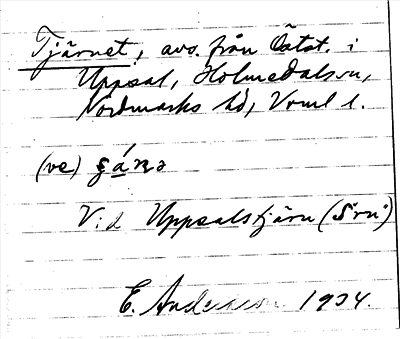 Tjärnet, avs. från Östst. i
Uppsal, Holmedals sn,
Nordmarks hd, Vrml l.
(ve) 
Vid Uppsalstjärn (S rn)
E. Andersson 1934.